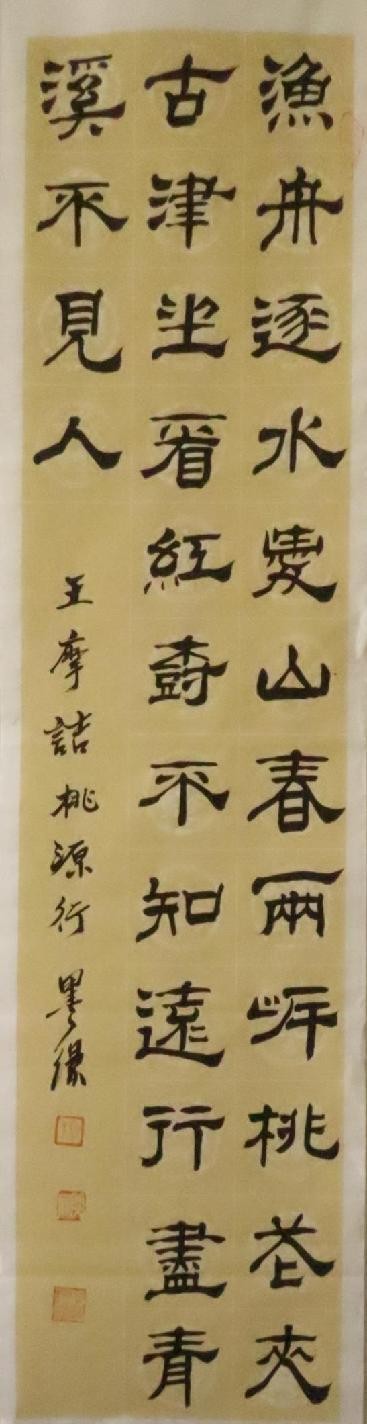 漁舟逐水愛山春兩岍桃花夾
古津坐看紅尌不知遠行盡青
溪不見人
王摩詰桃源行 墨濃